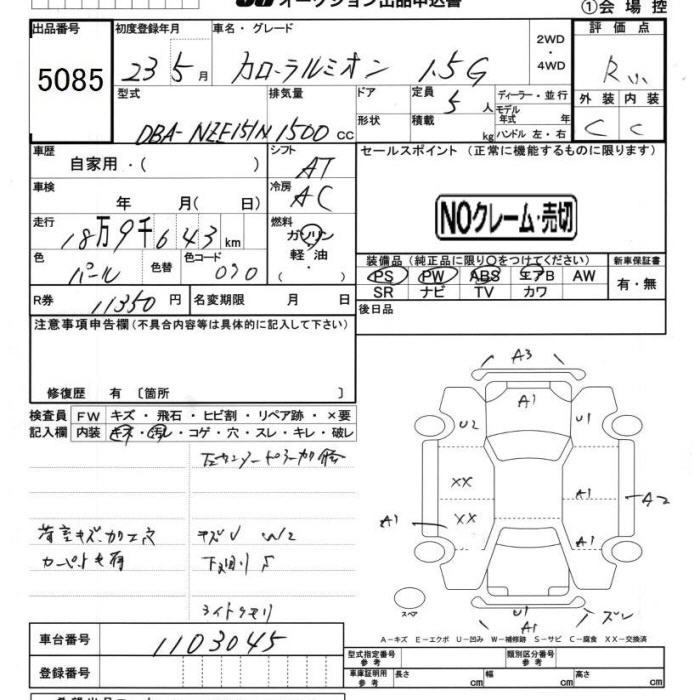 オークション出品申込書
①会場控
出品番号
5085
初度登録年月
23 5月
車名・グレード
カローラルミオン 1.5G
2WD
・
4WD
評価点
R
外装 内装
C C
型式
DBA-NZE151N
排気量
1500 cc
ドア
形状
定員 5人
積載 kg
ディーラー・並行
モデル年式 年
ハンドル 左・右
車歴
自家用・( )
シフト
AT
車検
年 月( 日)
冷房
AC
走行
18万9千643km
燃料
ガソリン
軽油
・
( )
色
パール
色替
色コード
070
R券 11350円
名変期限 月 日
セールスポイント (正常に機能するものに限ります)
NOクレーム・売切
装備品 (純正品に限り○をつけてください)
PS PW ABS エアB AW
SR ナビ TV カワ
新車保証書
有・無
後日品
注意事項申告欄(不具合内容等は具体的に記入して下さい)
修復歴 有 〔箇所 〕
検査員
記入欄
FW キズ・飛石・ヒビ割・リペア跡・×要
内装 キズ・汚レ・コゲ・穴・スレ・キレ・破レ
キズU W2
ライトクモリ
A3
A1
U2 U1
XX
XX
A1
A1
A2
A1
A1
U1
A1
ズレ
スペア
A-キズ E-エクボ U-凹み W-補修跡 S-サビ C-腐食 XX-交換済
車台番号
1103045
登録番号
型式指定番号
参考
類別区分番号
参考
車庫証明用
参考
長さ cm
幅 cm
高さ cm